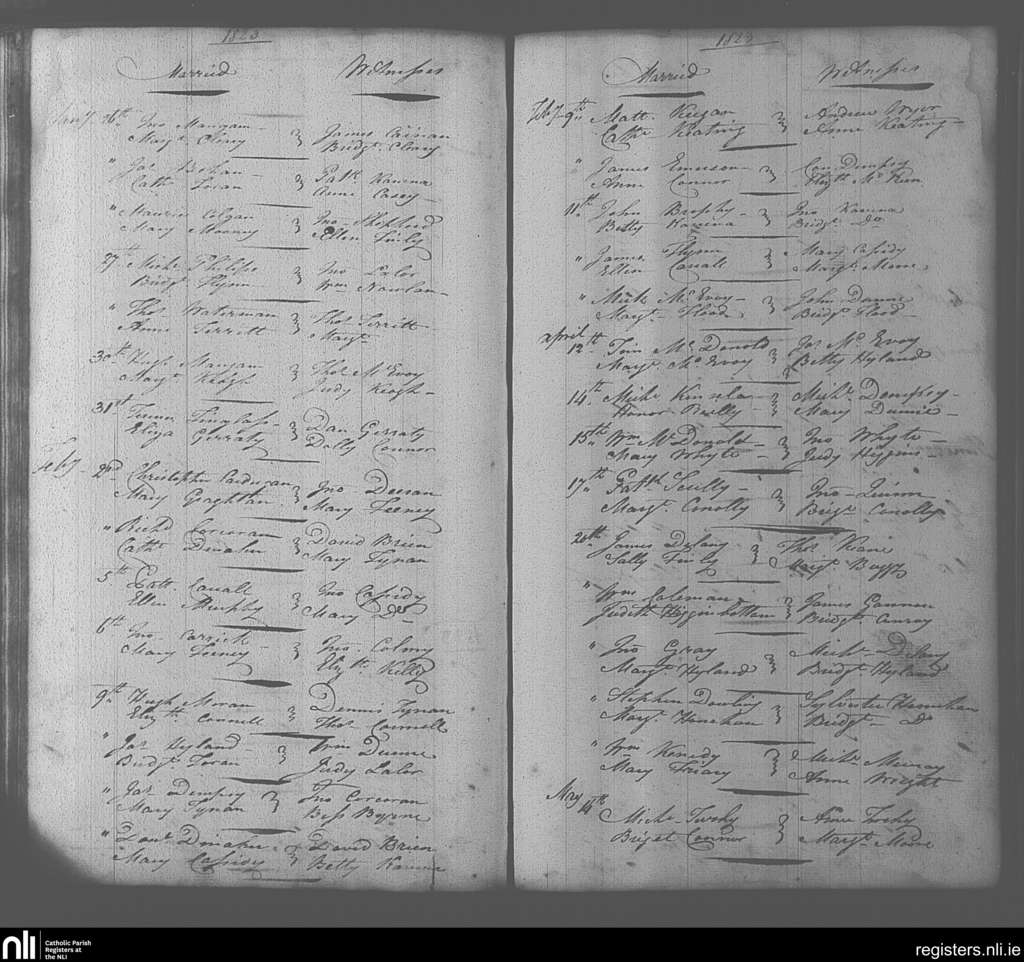 1823
Married Witnesses
Jany 26th Jno Mangan James
Mary Cleary Bridgt. Cleary
" Jas Behan Patk Kavena
Cath Foran Anne Casey
" Maurice Colgan Jno Shepperd
Mary Mooney Ellen Finly
27 Michl Philips Jno Lalor
Bridgt Flynn Wm Nowlan
" Thos Waterman Thos Territt
Anne Territt Margt
30th Hugh Mangan Thos McEvoy
Margt Keogh Judy Keogh
31st Dan Gerraty
Eliza Gerraty Dolly Connor
Feby 2nd Christopher Jno Deeran
Mary Graghlan Mary Feeney
" Richd Corcoran David Brien
Cath Dinahn Mary Tynan
5th Patt. Cavall Jno Casidy
Ellen Murphy Mary Do
6th Jno Carrick Jno Colmy
Mary Feeney Elizth Kelly
9th Hugh Moran Dennis Tynan
Elizth Connell Thos Connell
" Jas Hyland Wm Dunne
Bridgt Foran Judy Lalor
" Jas Dempsy Jno Corcoran
Mary Tynan Bess Byrne
" Danl Dinahn David Brien
Mary Cassidy Betty Kavena
1823
Married Witnesses
Feby 9th Matt. Keegan Andrew
Cathe Keating Anne Keating
" James Emerson Con Dempsy
Anne Connor Elizth McKeon
11th John Brophy Jno Kavena
Betty Kavena Bridgt Do
" James Flynn Mary Casidy
Ellen Cavall Margt Moore
" Mick McEvoy John Dunne
Margt Flood Bridgt Flood
april 12th Tim McDonold Jas McEvoy
Margt McEvoy Betty Hyland
14th Michl Kinsela Michl Dempsey
Honor Reilly Mary Dunne
15th Wm McDonold Jno Whyte
Mary Whyte Judy Higgins
17th Pattk Scully Jno Quinn
Margt Conolly Bridgt Conolly
20th James Delany Thos Keane
Sally Finly Margt
" Wm Coleman James Gannon
Judith Higginbottam Bridgt Conroy
" Jno Gray Michl Delany
Margt Hyland Bridgt Hyland
" Stephen Dowling Sylvester Hanrahan
Margt Hanrahan Bridgt Do
" Wm Kenedy Michl Murray
Mary Friary Anne Wright
May 4th Michl Tuohy Anne Tuohy
Briget Connor Margt Moore
nli Catholic Parish
Registers at
the NLI
registers.nli.ie